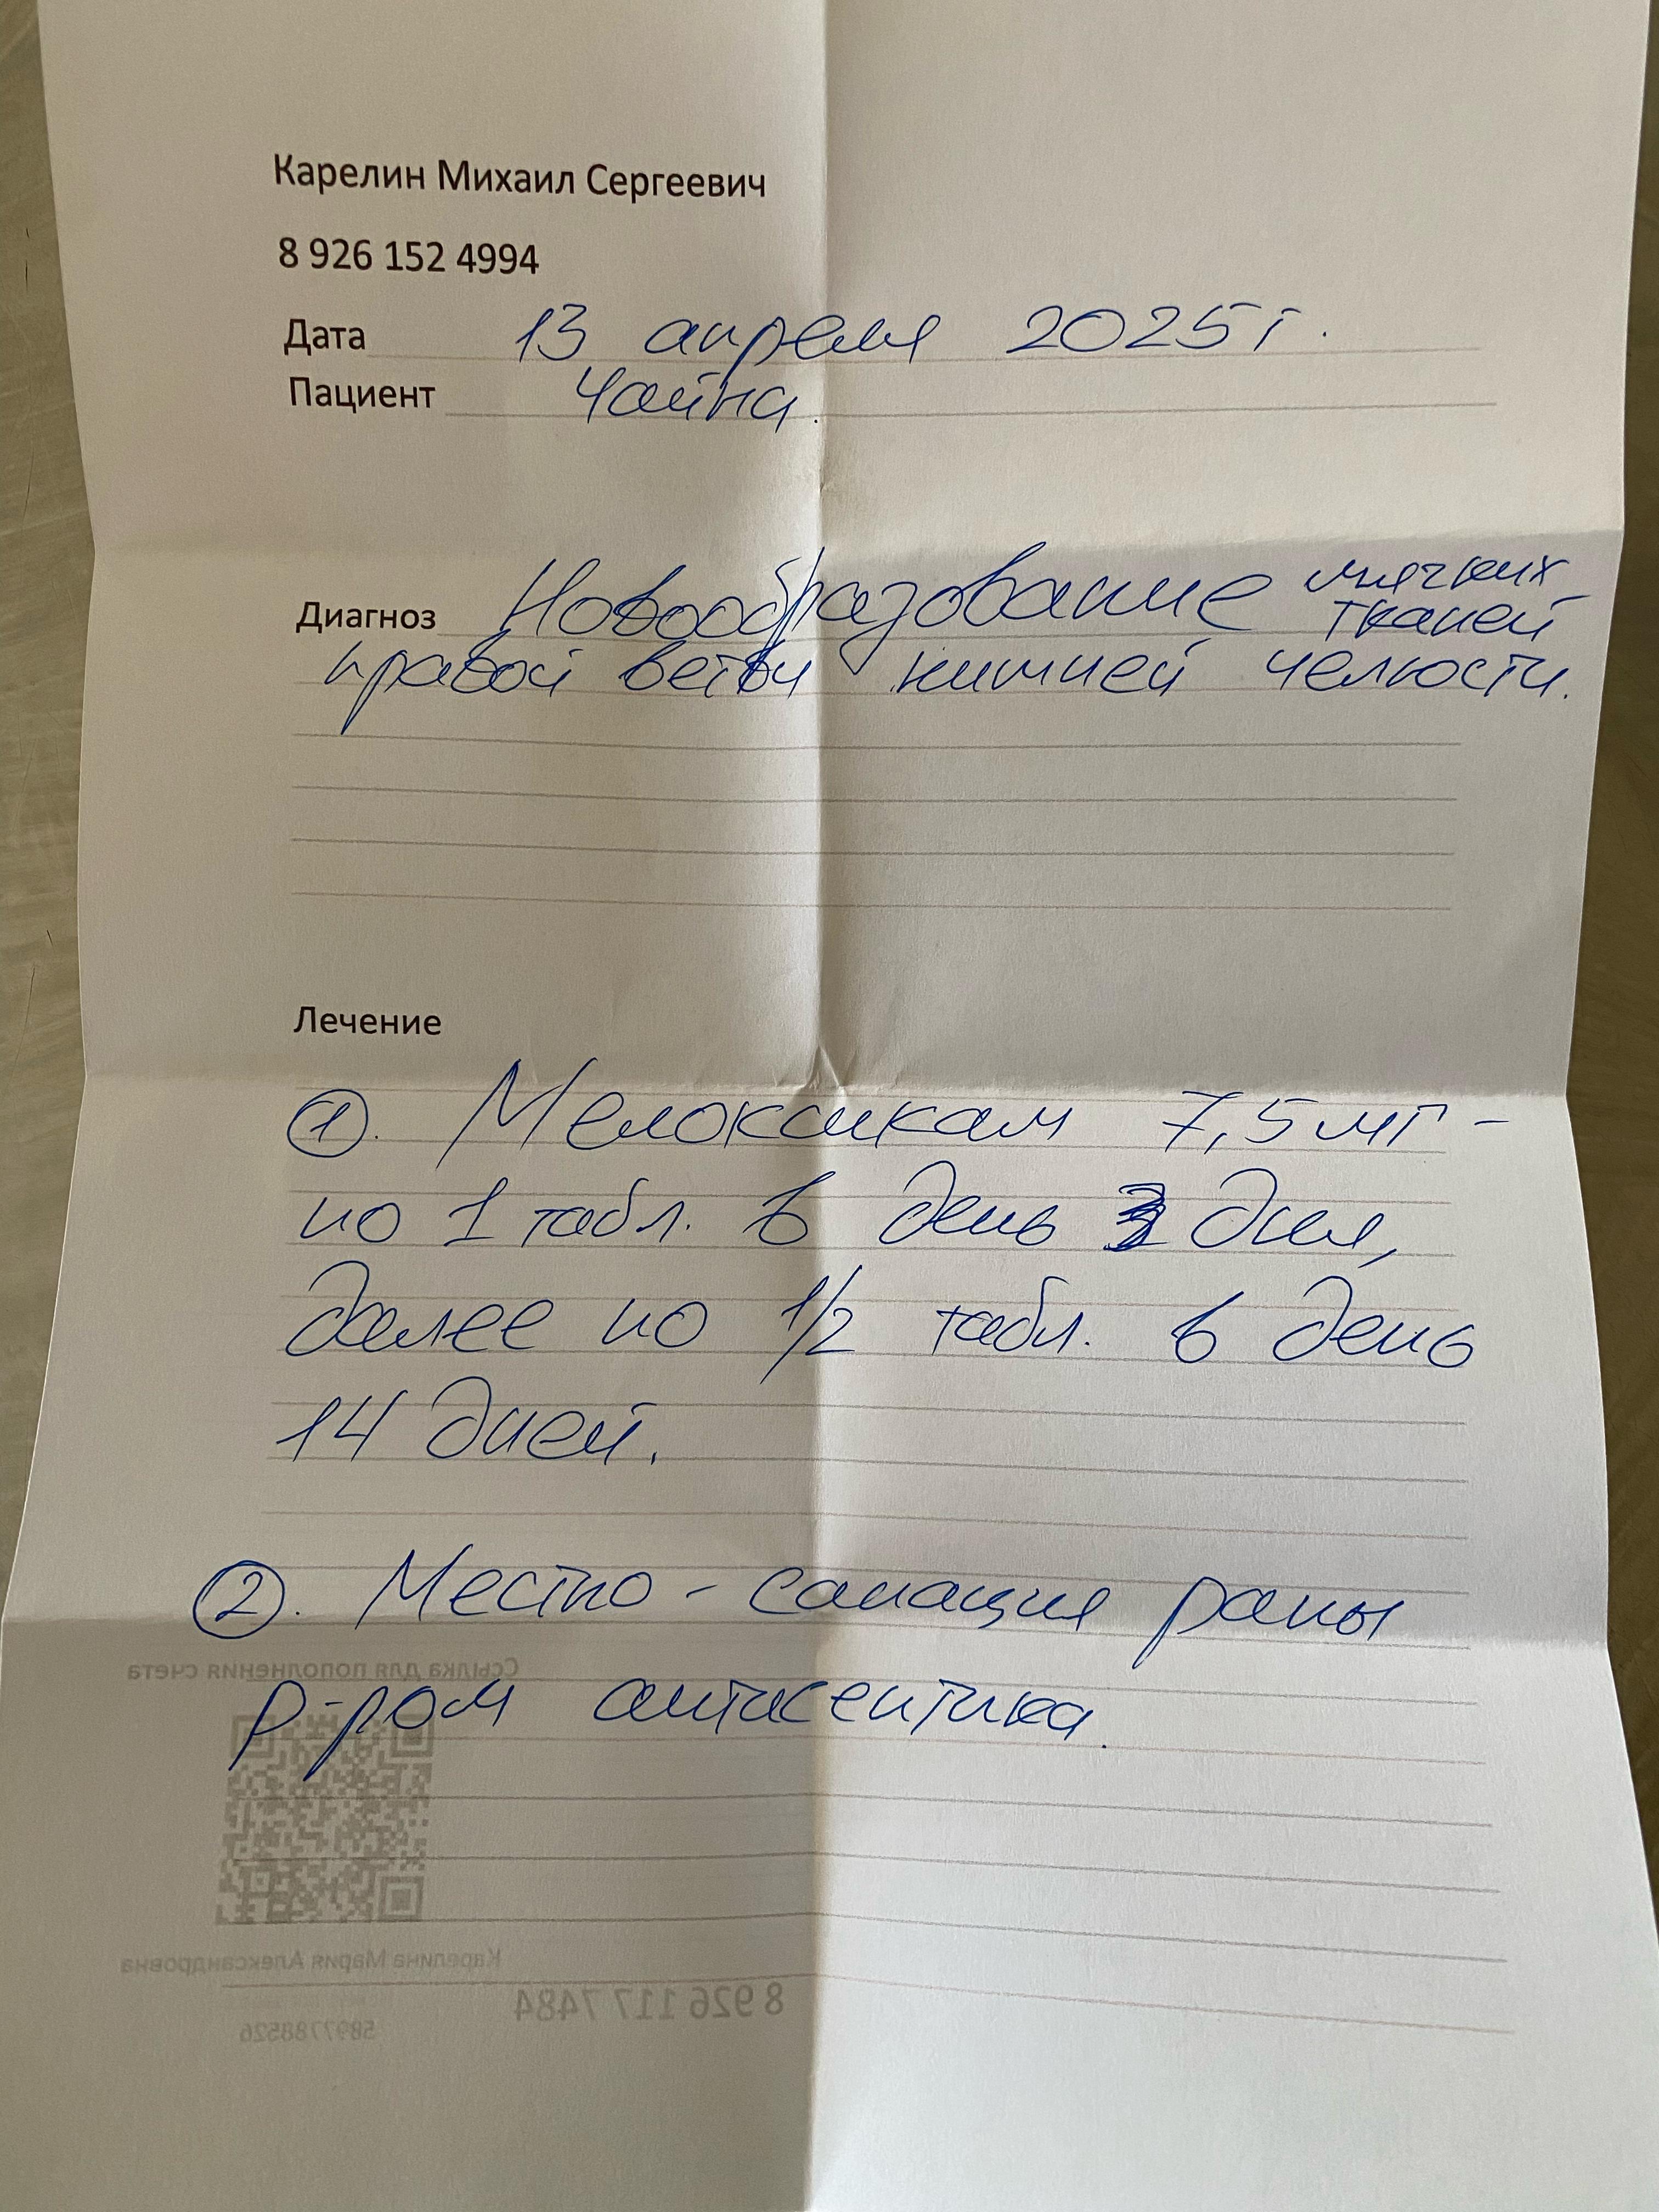 Карелин Михаил Сергеевич
8 926 152 4994
Дата 13 апреля 2025 г.
Пациент Чайна.
Диагноз Новообразование мягких тканей
правой ветви нижней челюсти.
Лечение
①. Мелоксикам 7,5 мг -
по 1 табл. в день 3 дня,
далее по 1/2 табл. в день
14 дней.
②. Местно - санация раны
р-ром антисептика.
Ссылка для пополнения счета
Карелина Мария Александровна
8 926 117 7484
5897788526